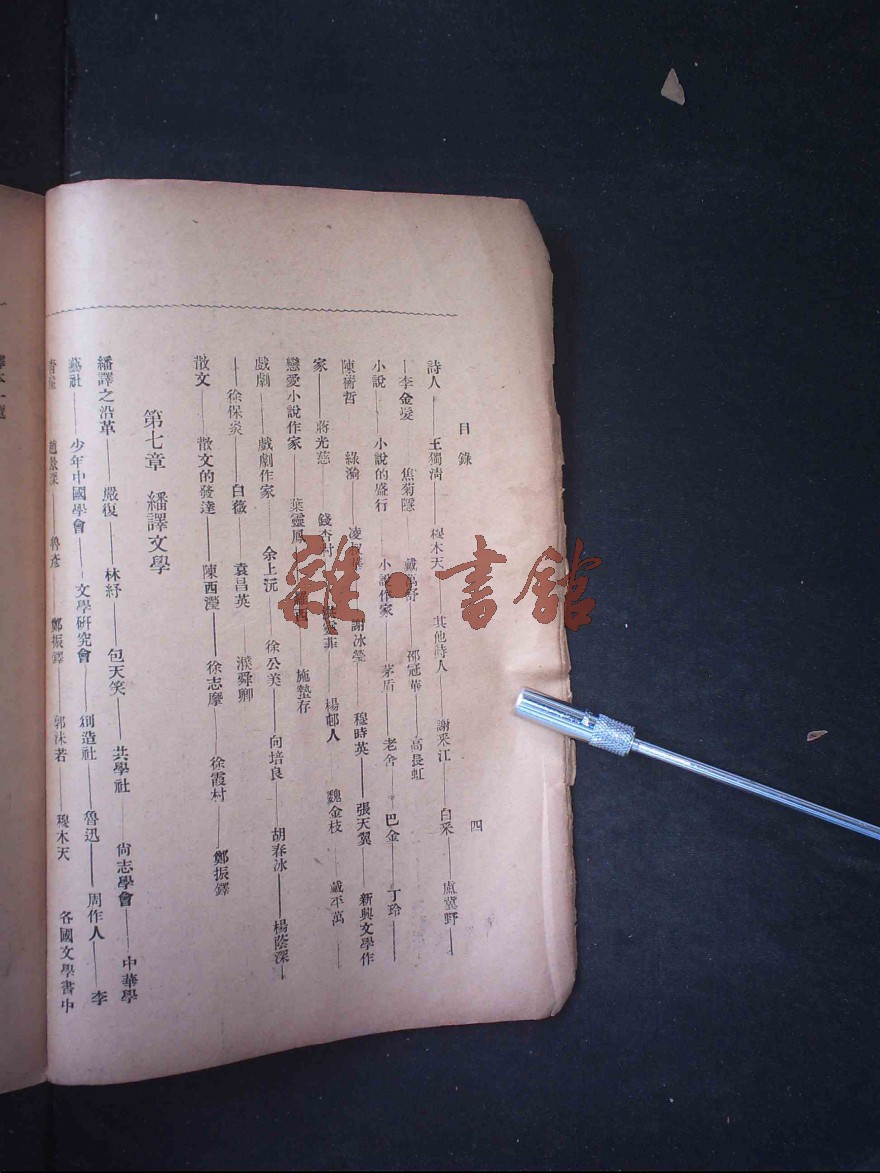 目錄
四
詩人——王獨淸——穆木天——其他詩人——謝采江——白采——盧冀野——
——李金髮——焦菊隱——戴望舒——邵冠華——高長虹
小說——小說的盛行——小說作家——茅盾——老舍——巴金——丁玲——
陳衡哲——綠漪——凌叔華——謝冰瑩——穆時英——張天翼——新興文學作
家——蔣光慈——錢杏邨——楊邨人——魏金枝——戴平萬——
戀愛小說作家——葉靈鳳——羅西——施蟄存
戲劇——戲劇作家——余上沅——徐公美——向培良——胡春冰——楊蔭深——
——徐保炎——白薇——袁昌英——濮舜卿
散文——散文的發達——陳西瀅——徐志摩——徐霞村——鄭振鐸
第七章 繙譯文學
繙譯之沿革——嚴復——林紓——包天笑——共學社——尙志學會——中華學
藝社——少年中國學會——文學硏究會——創造社——魯迅——周作人——李
靑崖——趙景深——魯彥——鄭振鐸——郭沫若——穆木天——各國文學書中
譯本一覽
雜·書館